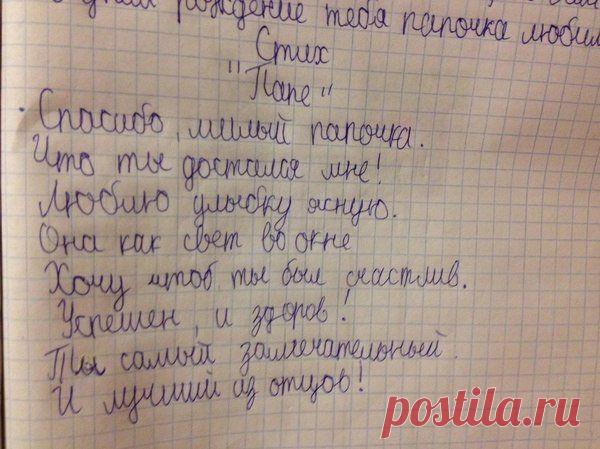 рождение тебя папочка любим
Стих
"Папе"
Спасибо, милый папочка.
Что ты достался мне!
Люблю улыбку ясную.
Она как свет во окне
Хочу чтоб ты был счастлив.
Успешен, и здоров!
Ты самый замечательный.
И лучший из отцов!
postila.ru